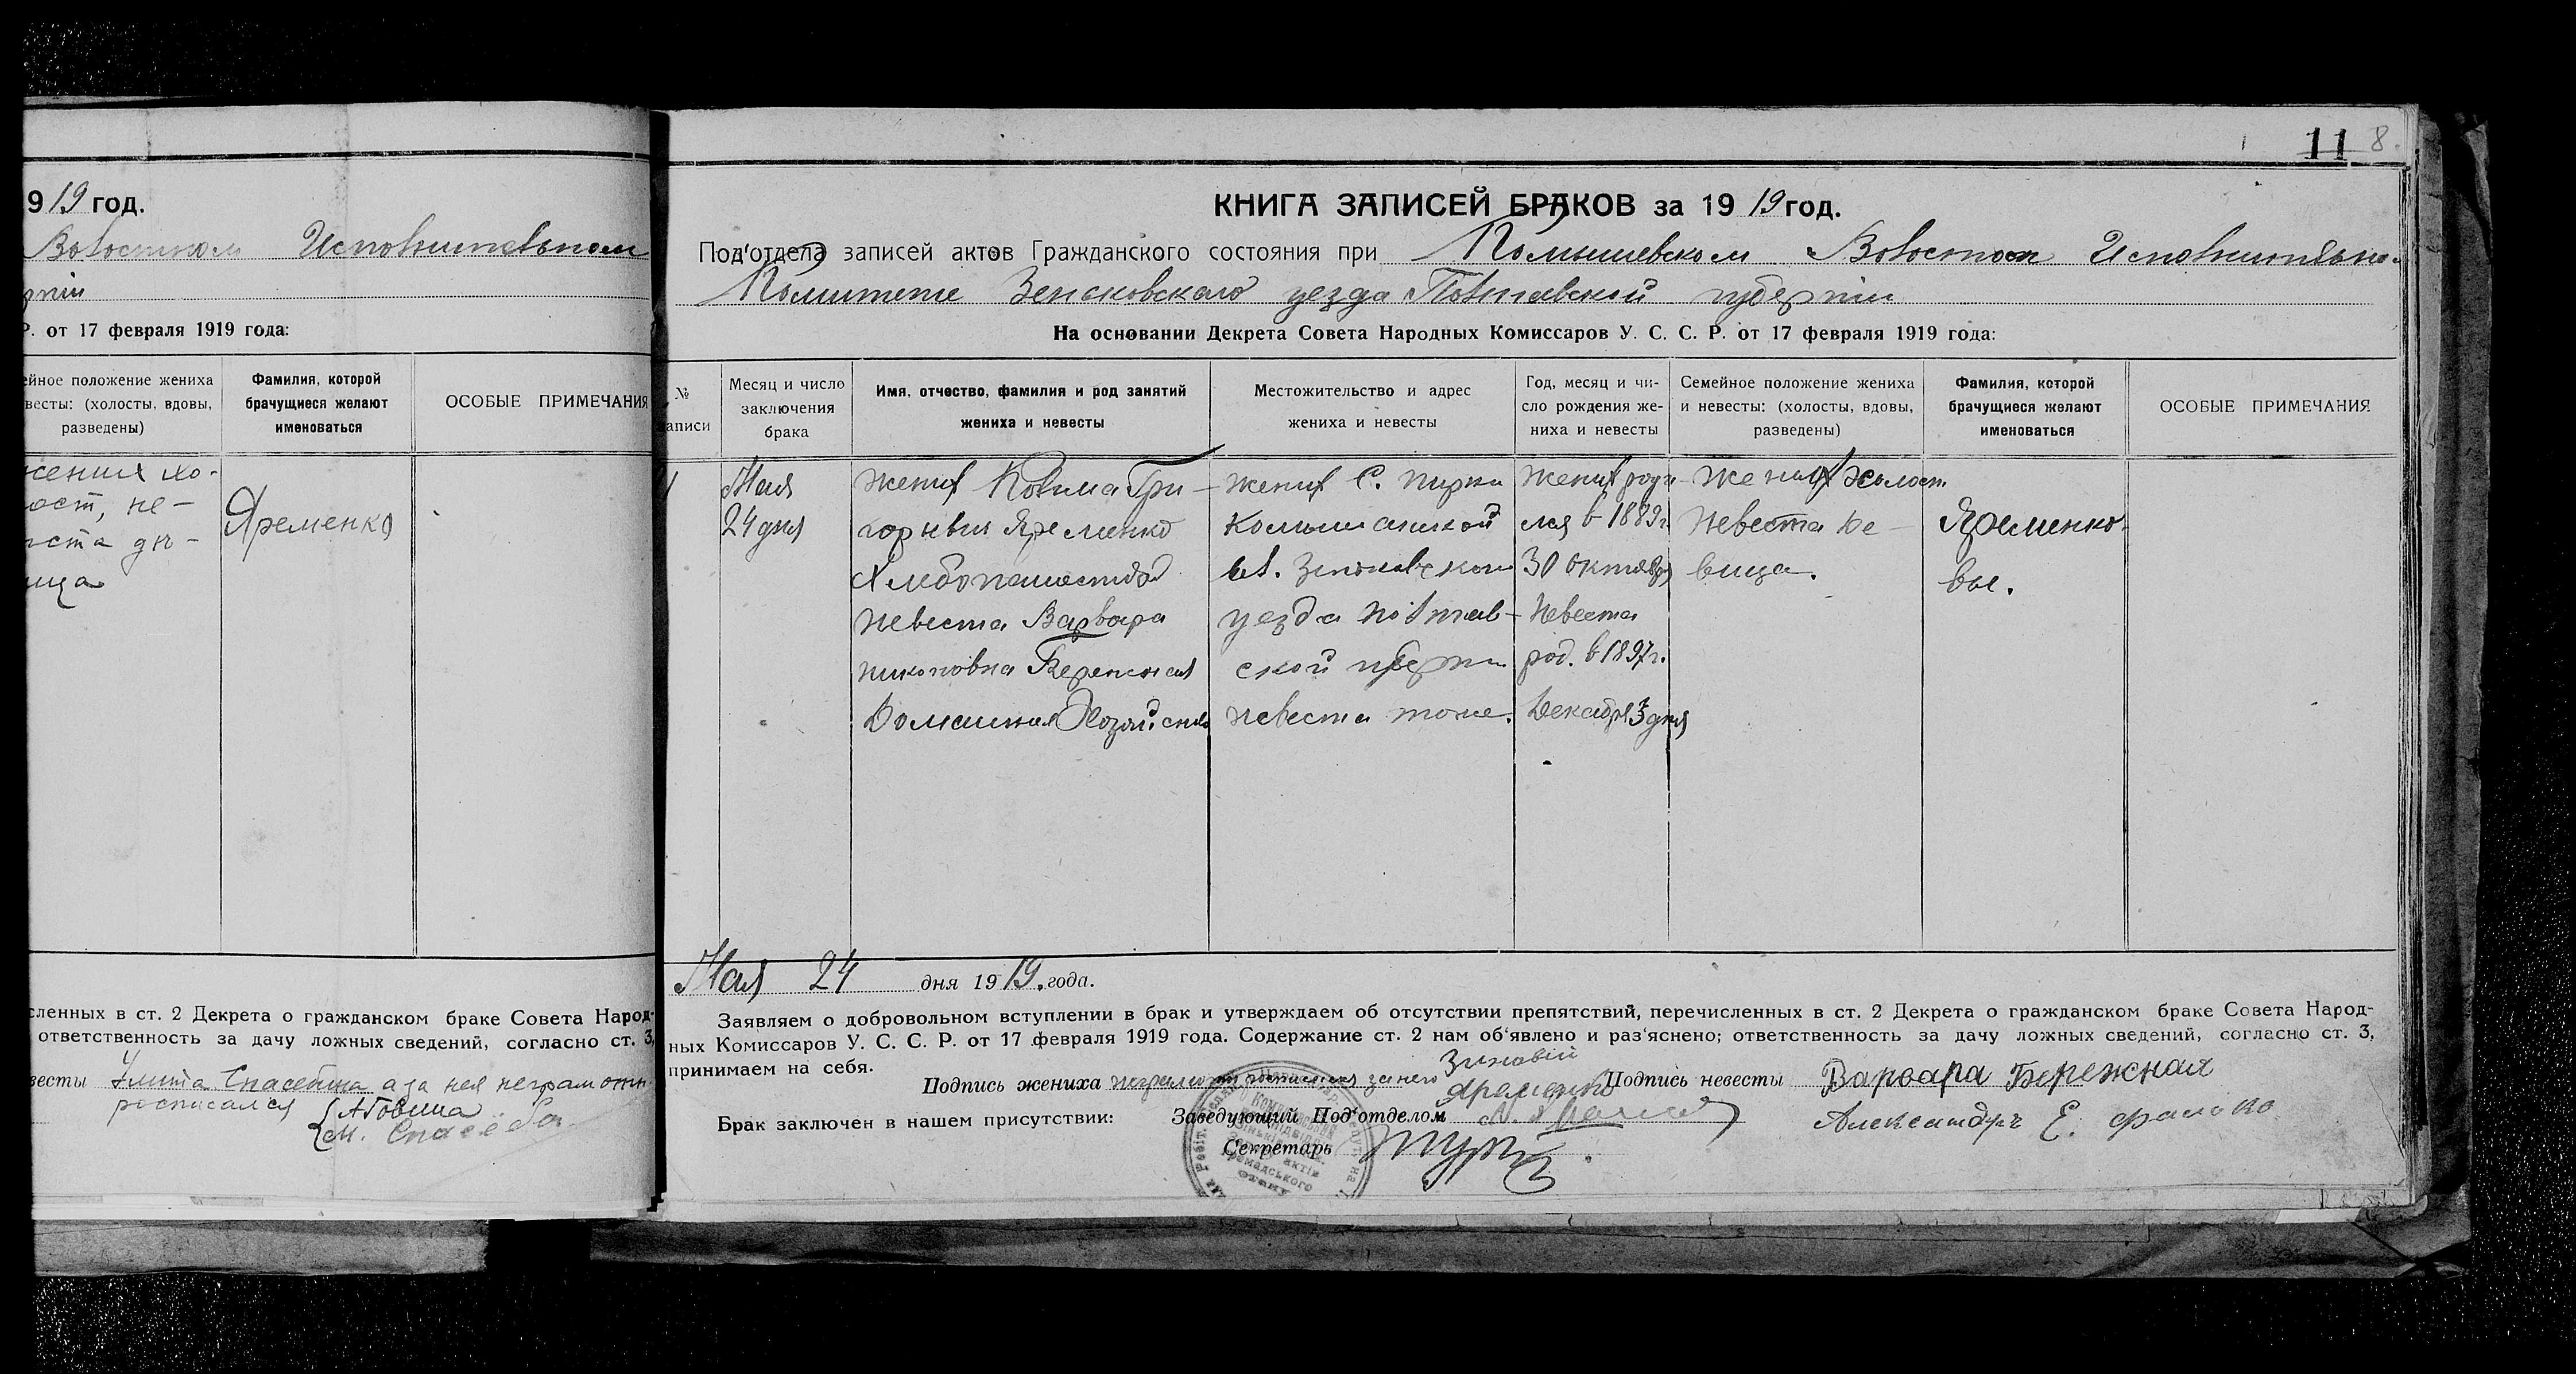 919 год.
Волостном Исполнительном
Р. от 17 февраля 1919 года:
ейное положение жениха
весты: (холосты, вдовы,
разведены)
Фамилия, которой
брачущиеся желают
именоваться
ОСОБЫЕ ПРИМЕЧАНИЯ
жених хо-
лост, не-
веста дѣ-
вица
Яременко
сленных в ст. 2 Декрета о гражданском браке Совета Народ-
ответственность за дачу ложных сведений, согласно ст. 3,
весты Улита а за нея неграмотн.
росписался
11 8.
КНИГА ЗАПИСЕЙ БРАКОВ за 1919 год.
Под'отдела записей актов Гражданского состояния при Комышевском Волостном Исполнительно.
Комитете Зеньковского уезда Полтавской губернии
На основании Декрета Совета Народных Комиссаров У. С. С. Р. от 17 февраля 1919 года:
№
записи
Месяц и число
заключения
брака
Имя, отчество, фамилия и род занятий
жениха и невесты
Местожительство и адрес
жениха и невесты
Год, месяц и чи-
сло рождения же-
ниха и невесты
Семейное положение жениха
и невесты: (холосты, вдовы,
разведены)
Фамилия, которой
брачущиеся желают
именоваться
ОСОБЫЕ ПРИМЕЧАНИЯ
Мая
24 дня
Жених Козьма Гри-
горьевич Яременко
Хлебопашество
Невеста Варвара
Бережная
Домашнея Хозяйство
Жених С.
вол. Зеньковском
уезда Полтав-
ской губернии
Невеста тоже.
Жених роди-
лся в 1889 г.
30 октября
Невеста
род. в 1897 г.
Декабря 3 дня
Жених холост
Невеста де-
вица.
Яременко-
вы.
Мая 24 дня 1919. года.
Заявляем о добровольном вступлении в брак и утверждаем об отсутствии препятствий, перечисленных в ст. 2 Декрета о гражданском браке Совета Народ-
ных Комиссаров У. С. С. Р. от 17 февраля 1919 года. Содержание ст. 2 нам об'явлено и раз'яснено; ответственность за дачу ложных сведений, согласно ст. 3,
принимаем на себя.
Подпись жениха неграмотн росписался за него Зиновий Яременко Подпись невесты Варвара Бережная
Брак заключен в нашем присутствии: Заведующий Под'отделом
Александръ Е.
Секретарь